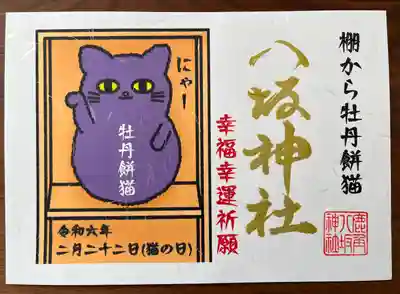 棚から牡丹餅猫
八坂神社
幸福幸運祈願
鹿角八坂神社
にゃー
牡丹餅猫
令和六年
二月二十二日(猫の日)